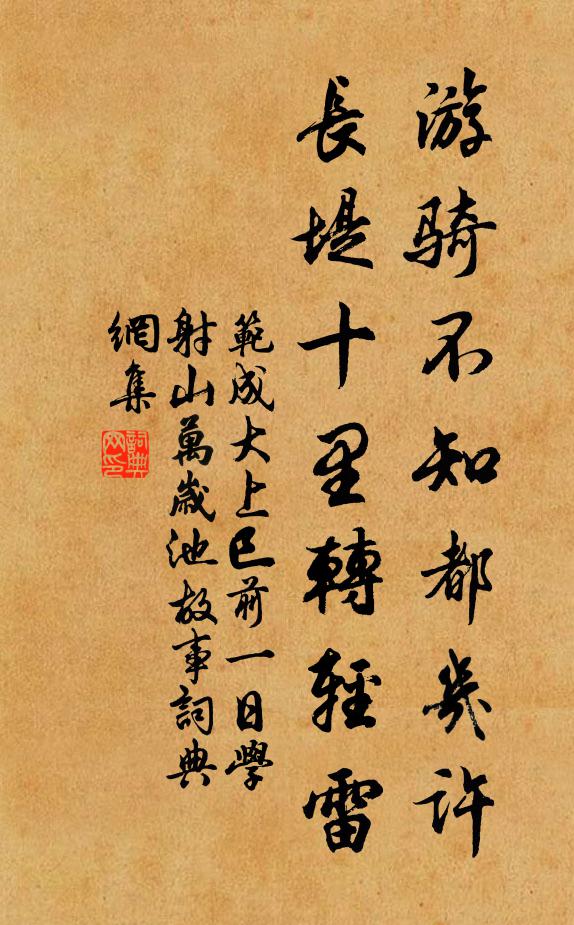 游騎不知都幾許
長堤十里轉輕雷
範成大上巳前一日學
射山萬歲池故事詞典
網集
詞典
网印